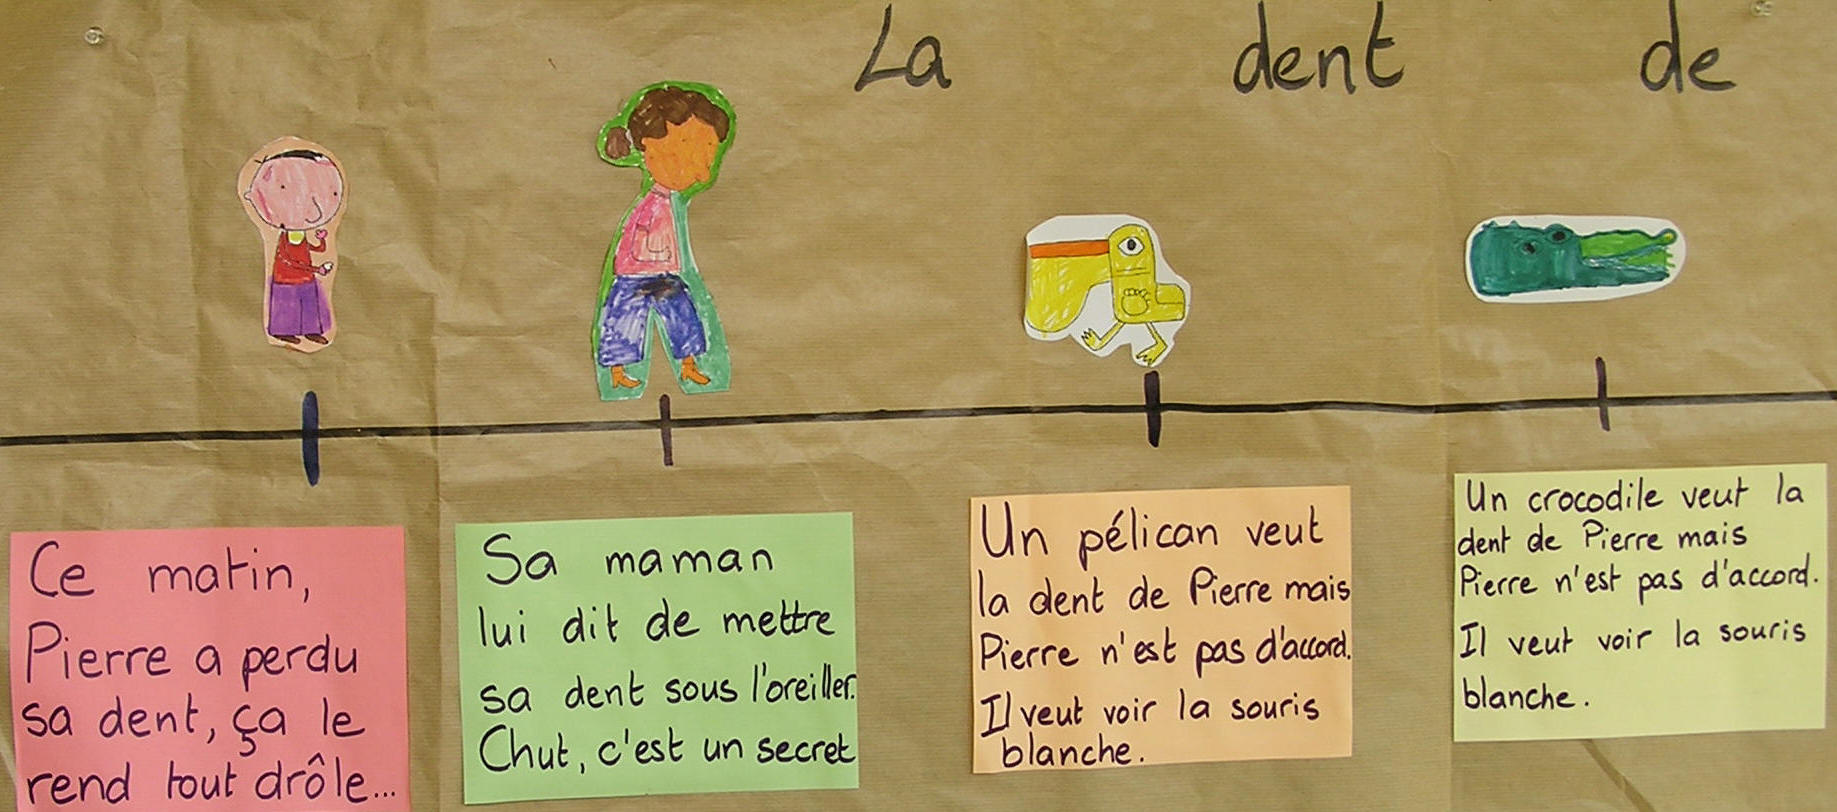 La dent de
Ce matin,
Pierre a perdu
sa dent, ça le
rend tout drôle...
Sa maman
lui dit de mettre
sa dent sous l'oreiller.
Chut, c'est un secret
Un pélican veut
la dent de Pierre mais
Pierre n'est pas d'accord.
Il veut voir la souris
blanche.
Un crocodile veut la
dent de Pierre mais
Pierre n'est pas d'accord.
Il veut voir la souris
blanche.